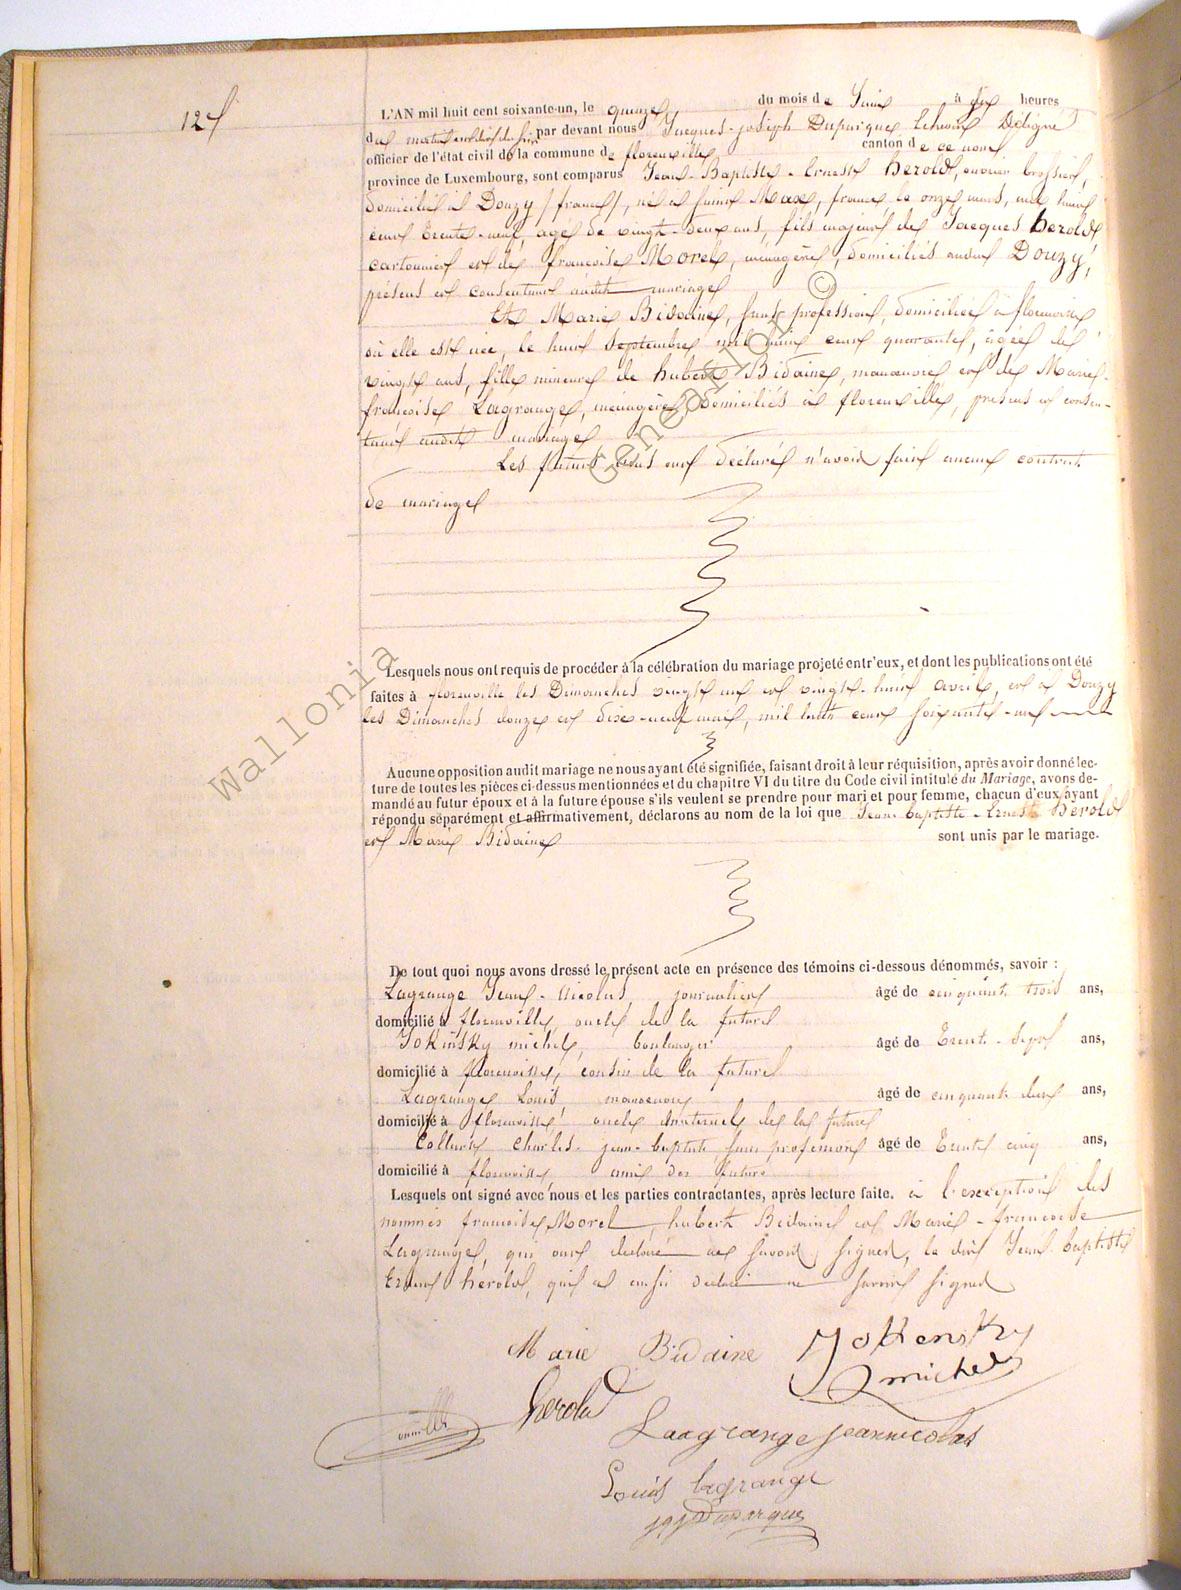 12
L'AN mil huit cent soixante-un, le quinze du mois de Juin à dix heures
du matin par devant nous Jacques-joseph Duparque Echevin Délégué
officier de l'état civil de la commune de florenville canton de ce nom
province de Luxembourg, sont comparus Jean-Baptiste-Ernest herold, ouvrier brossier,
domicilié à Douzy (france), né à france le onze mars, mil huit
cent trente-neuf, agé de vingt-deux ans, fils majeur de Jacques herold
cartonnier et de francoise Morel, ménagère, domiciliés audit Douzy,
présens et consentant audit mariage
Et Marie Bidaine, sans profession, domiciliée à florenville
où elle est née, le huit septembre mil huit cent quarante, agée de
vingt ans, fille mineure de hubert Bidaine, manœuvre et de Marie-
francoise Lagrange, ménagère, domiciliés à florenville, présens et consen-
tant audit mariage
Les futurs époux ont déclaré n'avoir fait aucun contrat
de mariage
Lesquels nous ont requis de procéder à la célébration du mariage projeté entr'eux, et dont les publications ont été
faites à florenville les Dimanches vingt un et vingt-huit avril, et à Douzy
les Dimanches douze et dix-neuf mai, mil huit cent soixante-un
Aucune opposition audit mariage ne nous ayant été signifiée, faisant droit à leur réquisition, après avoir donné lec-
ture de toutes les pièces ci-dessus mentionnées et du chapitre VI du titre du Code civil intitulé du Mariage, avons de-
mandé au futur époux et à la future épouse s'ils veulent se prendre pour mari et pour femme, chacun d'eux ayant
répondu séparément et affirmativement, déclarons au nom de la loi que Jean-baptiste-Ernest Hérold
et Marie Bidaine sont unis par le mariage.
De tout quoi nous avons dressé le présent acte en présence des témoins ci-dessous dénommés, savoir :
Lagrange Jean-Nicolas, journalier âgé de cinquante trois ans,
domicilié à florenville, oncle de la future
Jokensky michel, boulanger âgé de Trente-sept ans,
domicilié à florenville, cousin de la future
Lagrange Louis manœuvre âgé de cinquante deux ans,
domicilié à florenville, oncle maternel de la future
Collard Charles-jean-baptiste, sans profession âgé de Trente cinq ans,
domicilié à florenville ami des futurs
Lesquels ont signé avec nous et les parties contractantes, après lecture faite. à l'exception des
nommés francoise Morel, hubert Bidaine et Marie-francoise
Lagrange, qui ont déclaré ne savoir signer, le dit Jean-baptiste
Ernest hérold, qui a aussi déclaré ne savoir signer
Marie Bidaine Jokensky
michel
herold
Laagrange jeannicolas
Louis lagrange
jqjDuparque
Wallonia Genealogy ©